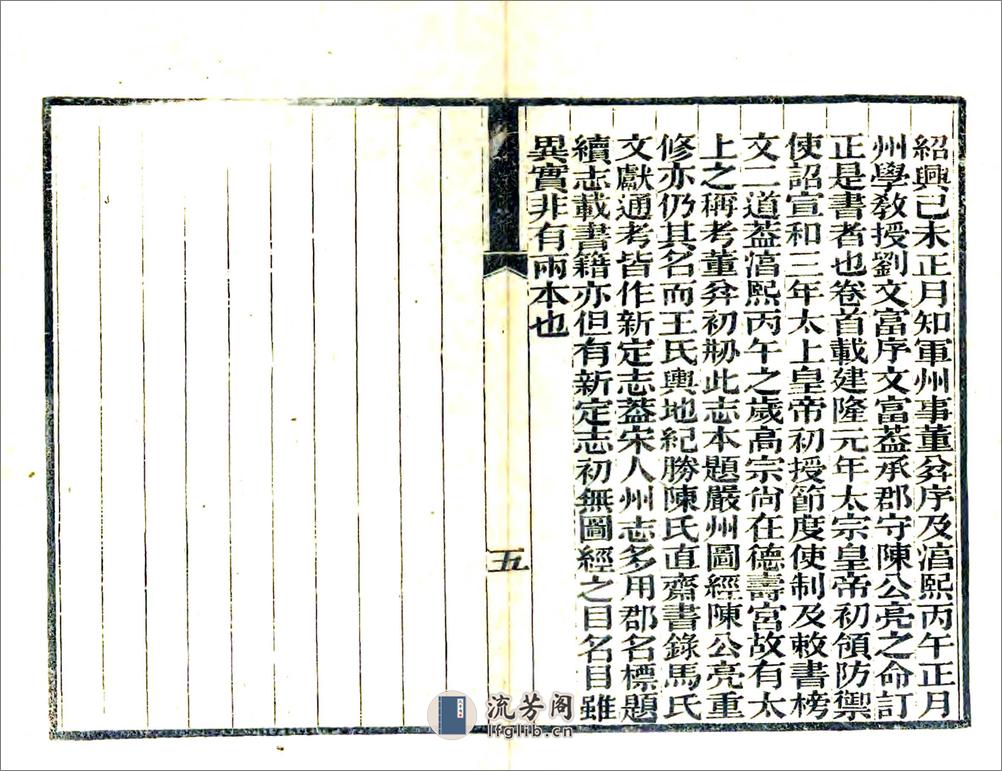 紹興己未正月知軍州事董弅序及淳熙丙午正月
州學教授劉文富序文富葢承郡守陳公亮之命訂
正是書者也卷首載建隆元年太宗皇帝初領防禦
使詔宣和三年太上皇帝初授節度使制及敕書榜
文二道葢淳熙丙午之歲高宗尙在德壽宮故有太
上之稱考董弅初剙此志本題嚴州圖經陳公亮重
修亦仍其名而王氏輿地紀勝陳氏直齋書錄馬氏
文獻通考皆作新定志葢宋人州志多用郡名標題
續志載書籍亦但有新定志初無圖經之目名目雖
異實非有兩本也
五
流芳阁
lfglib.cn